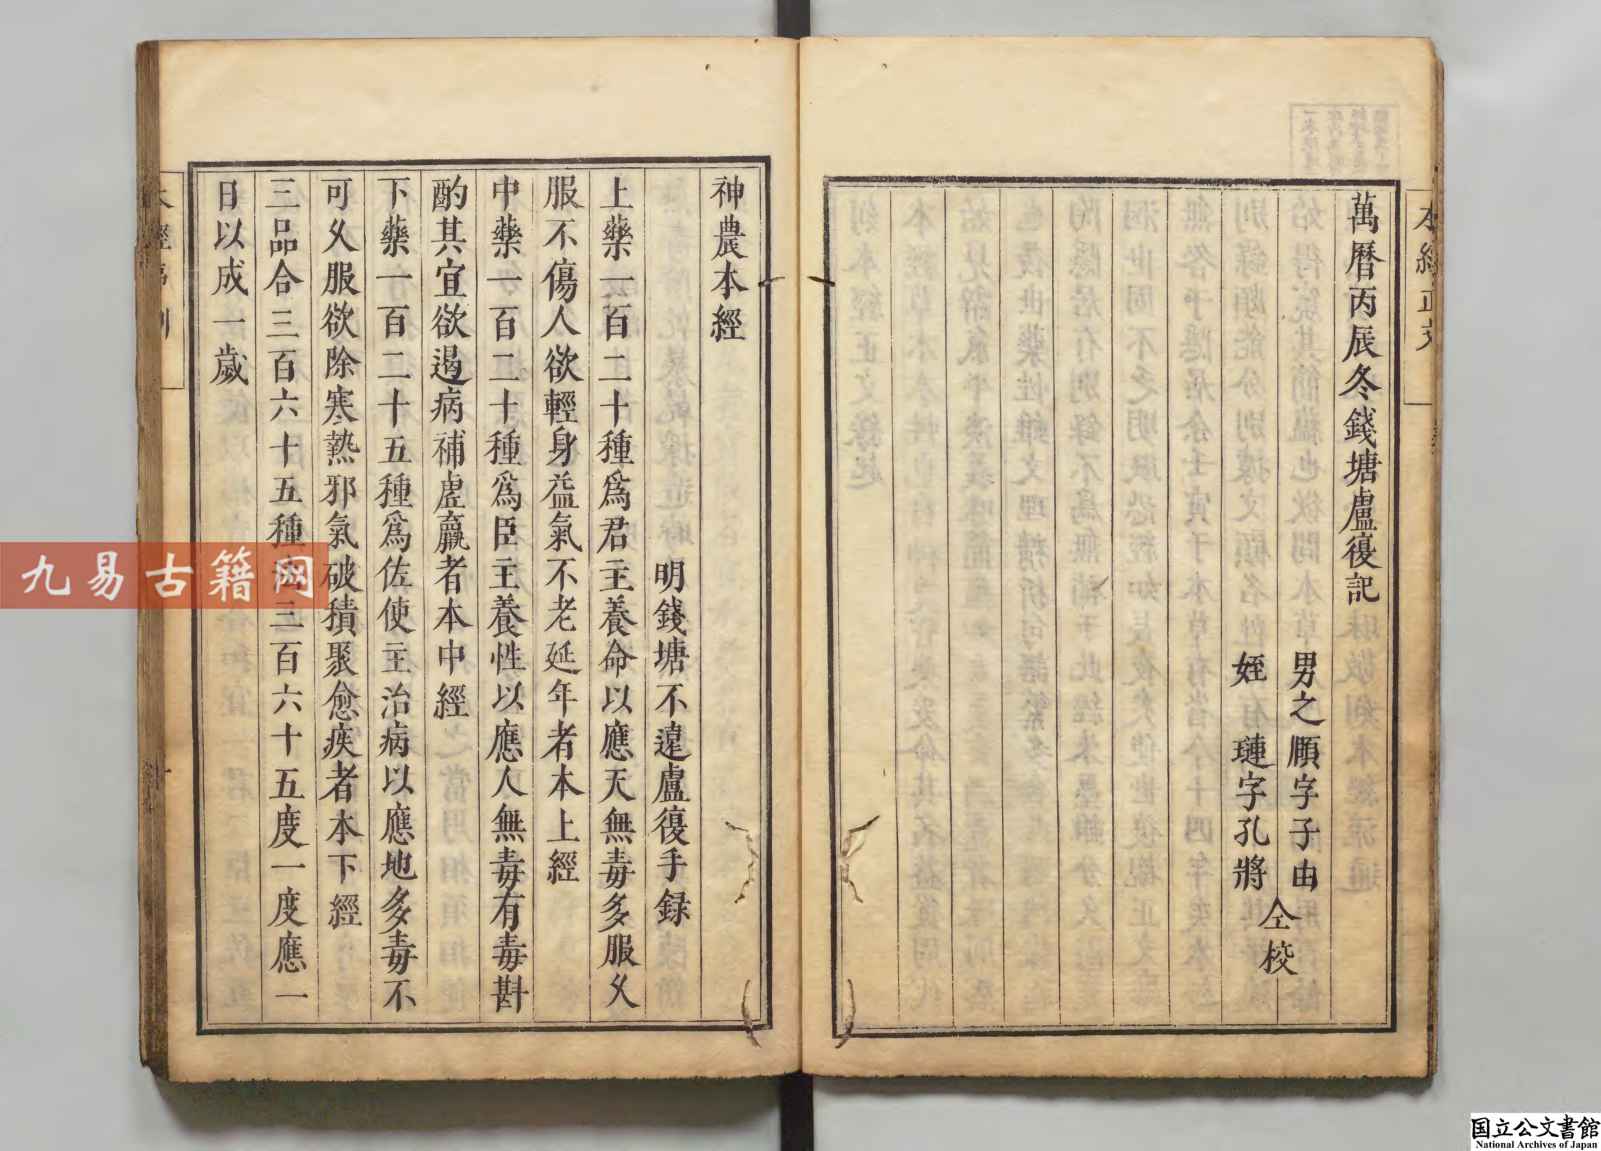 萬曆丙辰冬錢塘盧復記
男之頤字子由
姪 璉字孔將
仝校
神農本經
明錢塘不遠盧復手録
上藥一百二十種爲君主養命以應天無毒多服久
服不傷人欲輕身益氣不老延年者本上經
中藥一百二十種爲臣主養性以應人無毒有毒斟
酌其宜欲遏病補虗羸者本中經
下藥一百二十五種爲佐使主治病以應地多毒不
可久服欲除寒熱邪氣破積聚愈疾者本下經
三品合三百六十五種法三百六十五度一度應一
日以成一歲
九易古籍网
国立公文書館
National Archives of Japan